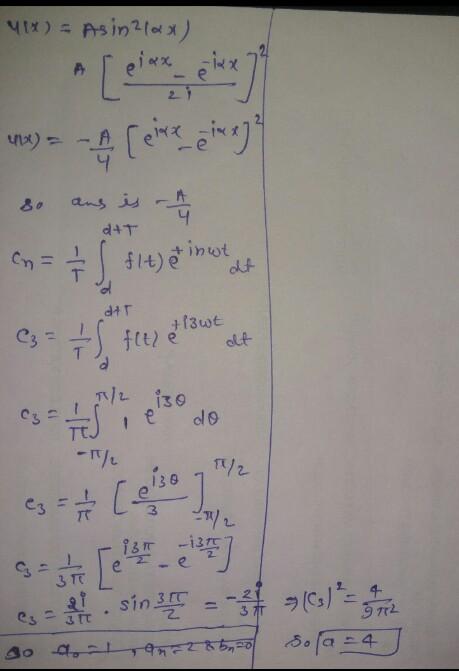 ψ(x) = A sin²(αx)
A [ (e^{iαx} - e^{-iαx}) / 2i ]²
ψ(x) = -A/4 [e^{iαx} - e^{-iαx}]²
so ans is -A/4
Cn = 1/T ∫_d^{d+T} f(t) e^{+inωt} dt
C3 = 1/T ∫_d^{d+T} f(t) e^{+i3ωt} dt
C3 = 1/π ∫_{-π/2}^{π/2} 1 e^{i3θ} dθ
C3 = 1/π [ e^{i3θ} / 3 ]_{-π/2}^{π/2}
C3 = 1/3π [ e^{i3π/2} - e^{-i3π/2} ]
C3 = 2i/3π . sin 3π/2 = -2i/3π ⇒ |C3|² = 4/9π²
so a0 = 1, an = 2 & bn = 0 so a = 4